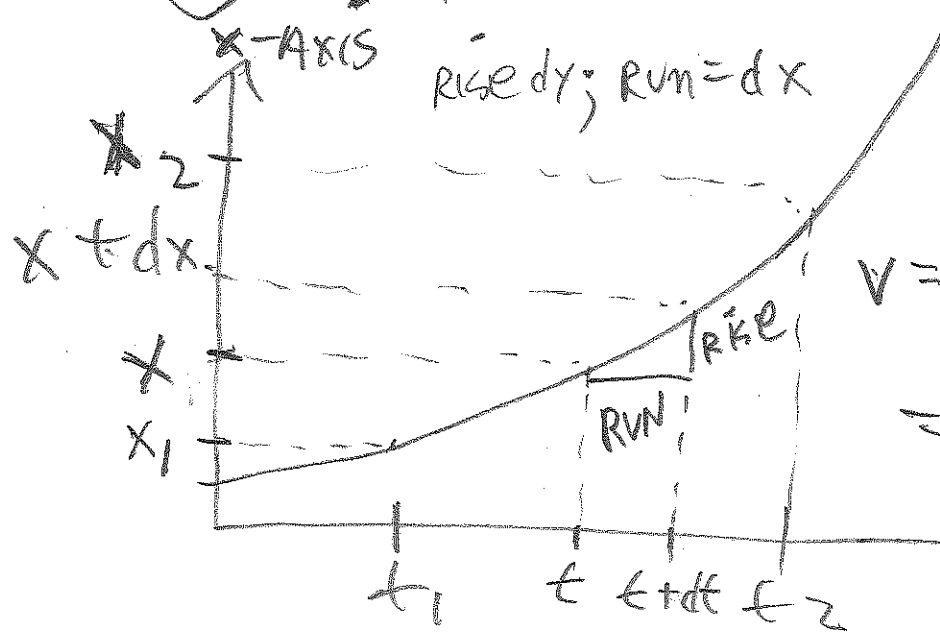 x-AXIS
RISE dy; RUN = dx
x2
x + dx
x
x1
V =
=
RISE
RUN
t1 t t+dt t2